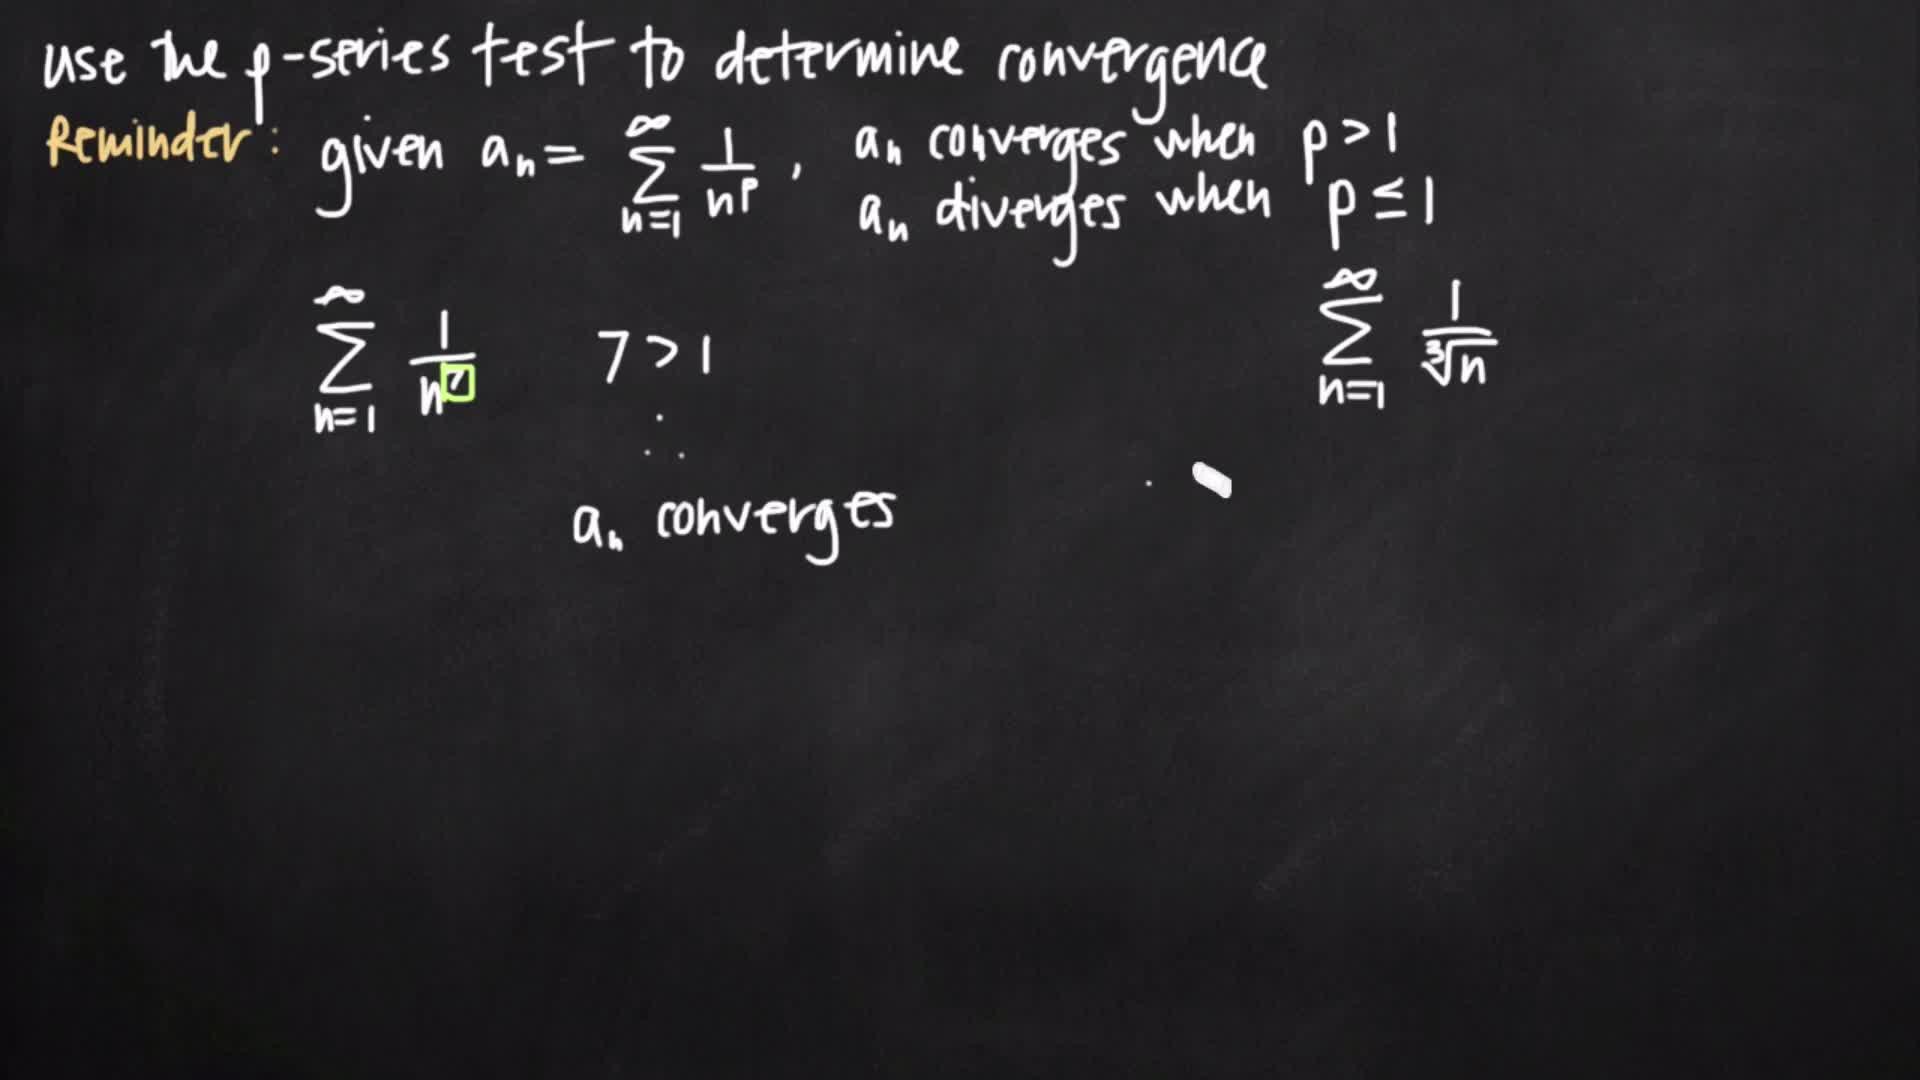 use the p-series test to determine convergence
Reminder: given aₙ = ∑ₙ₌₁^∞ 1/nᵖ, aₙ converges when p > 1
aₙ diverges when p ≤ 1
∑ₙ₌₁^∞ 1/n⁷ 7 > 1 ∑ₙ₌₁^∞ 1/∛n
∴
aₙ converges